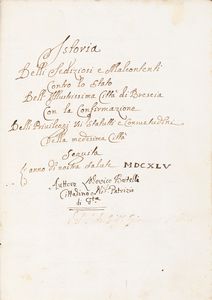 Istoria
Delli Sediziosi e Malcontenti
Contro lo Stato
Dell' Illustrissima Città di Brescia
Con la Confirmazione
Delli Privileggi Usi Statutti e Consuetudini
Della medesima Città
Seguita
l'anno di nostra salute MDCXLV
Auttore
Cittadino Patrizio
di